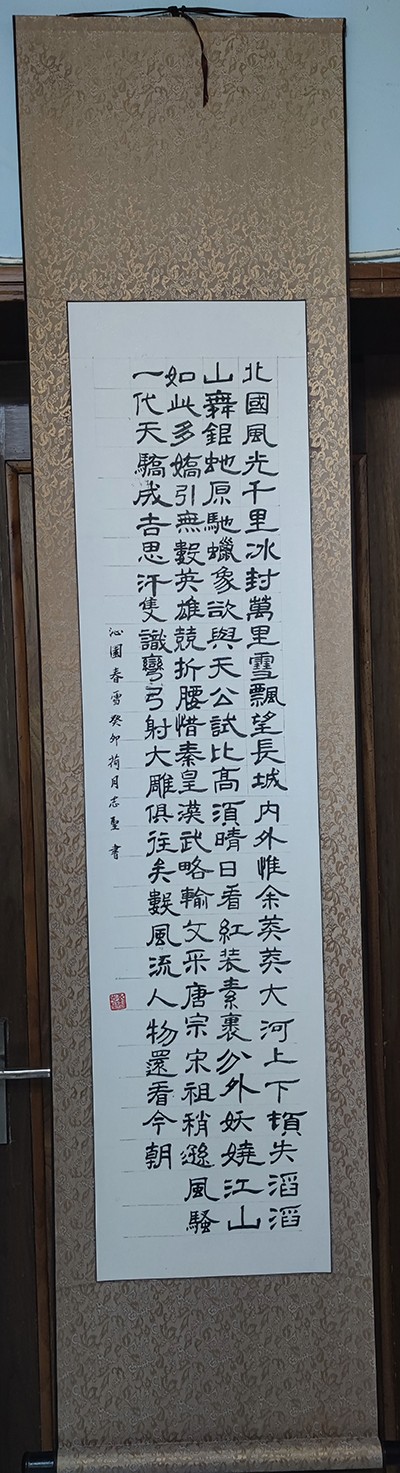 北國風光千里冰封萬里雪飄望長城内外惟余莽莽大河上下頓失滔滔
山舞銀虵原馳蠟象欲與天公試比高須晴日看紅装素裹分外妖嬈江山
如此多嬌引無數英雄競折腰惜秦皇漢武略輸文采唐宗宋祖稍遜風騷
一代天驕成吉思汗隻識彎弓射大雕俱往矣數風流人物還看今朝
沁園春雪癸卯荷月志聖書